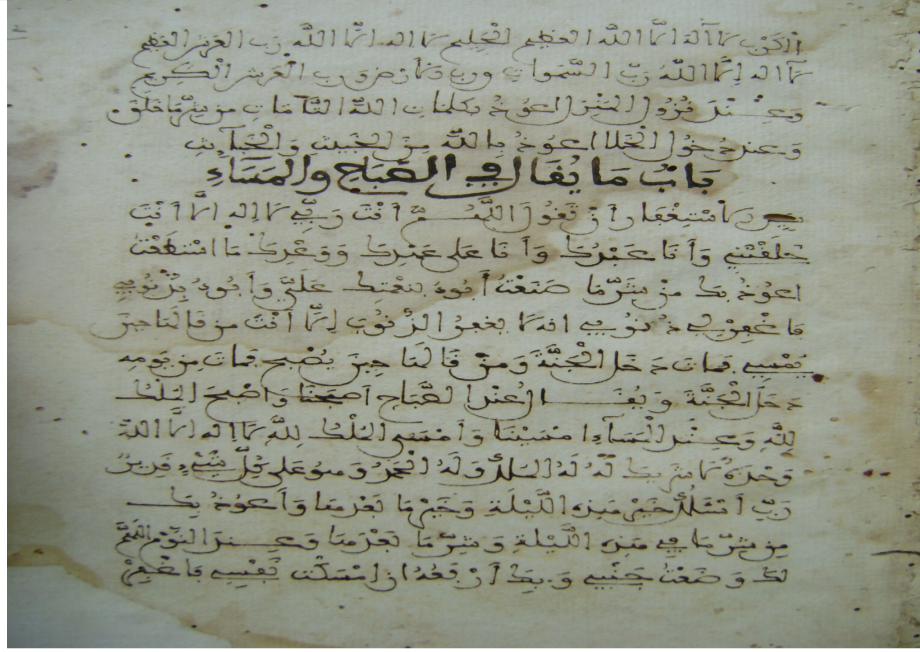 الكرب لا اله الا الله العظيم الحليم لا اله الا الله رب العرش العظيم
لا اله الا الله رب السموات ورب الارض ورب العرش الكريم
وعند نزول المنزل اعوذ بكلمات الله التامات من شر ما خلق
وعند دخول الخلا اعوذ بالله من الخبيث والخبائث
باب ما يقال في الصباح والمساء
الاستغفار أن تقول اللهم أنت ربي لا اله الا أنت
خلقتني وأنا عبدك وأنا على عهدك ووعدك ما استطعت
اعوذ بك من شر ما صنعت أبوء بنعمتك علي وأبوء بذنوبي
فاغفرلي ذنوبي انه لا يغفر الذنوب إلا أنت من قالها حين
يمسي فمات دخل الجنة ومن قالها حين يصبح فمات من يومه
دخل الجنة ويقال عند الصباح أصبحنا وأصبح الملك
لله وعند المساء امسينا وأمسى الملك لله لا اله الا الله
وحده لا شريك له له الملك وله الحمد وهو على كل شيء قدير
رب أسئلك خير هذه الليلة وخير ما بعدها وأعوذ بك
من شر ما في هذه الليلة وشر ما بعدها وعند النوم اللهم
لك وضعت جنبي وبك أرفعه ان امسكت نفسي فاغفر